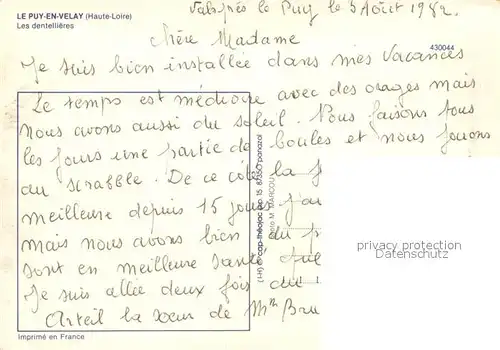 LE PUY-EN-VELAY (Haute-Loire)
Les dentellières
Vals près le Puy le 5 Août 1982.
Chère Madame
430044
Je suis bien installée dans mes vacances
Le temps est médiocre avec des orages mais
nous avons aussi du soleil. Nous faisons tous
les jours une partie de boules et nous jouons
au scrabble. De ce côté la
meilleure depuis 15 jours
mais nous avons bien du
sont en meilleure santé
Je suis allée deux fois du
Arteil la sœur de Mme Bru
Imprimé en France
cap-théojac 87350 panazol
M. MARCOU
privacy protection
Datenschutz